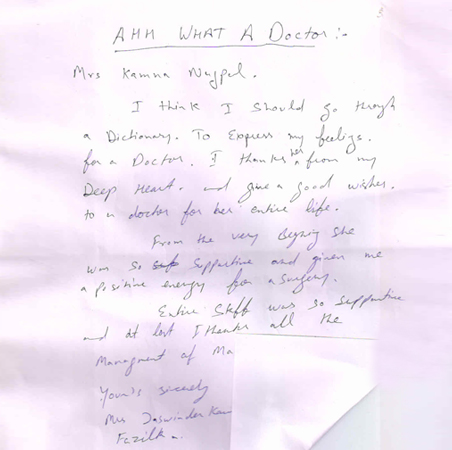 AHH WHAT A Doctor:-
Mrs Kamna Nagpal.
I think I should go through
a Dictionary. To Express my feelings.
for a Doctor. I thanks her from my
Deep Heart. and give a good wishes.
to a doctor for her entire life.
From the very Begning She
was so supportive and given me
a positive energy for a surgery.
Entire Staff was so supportive
and at last I thanks all the
Managment of Ma
Your's sincerly
Mrs Jaswinder Kau
Fazilka.